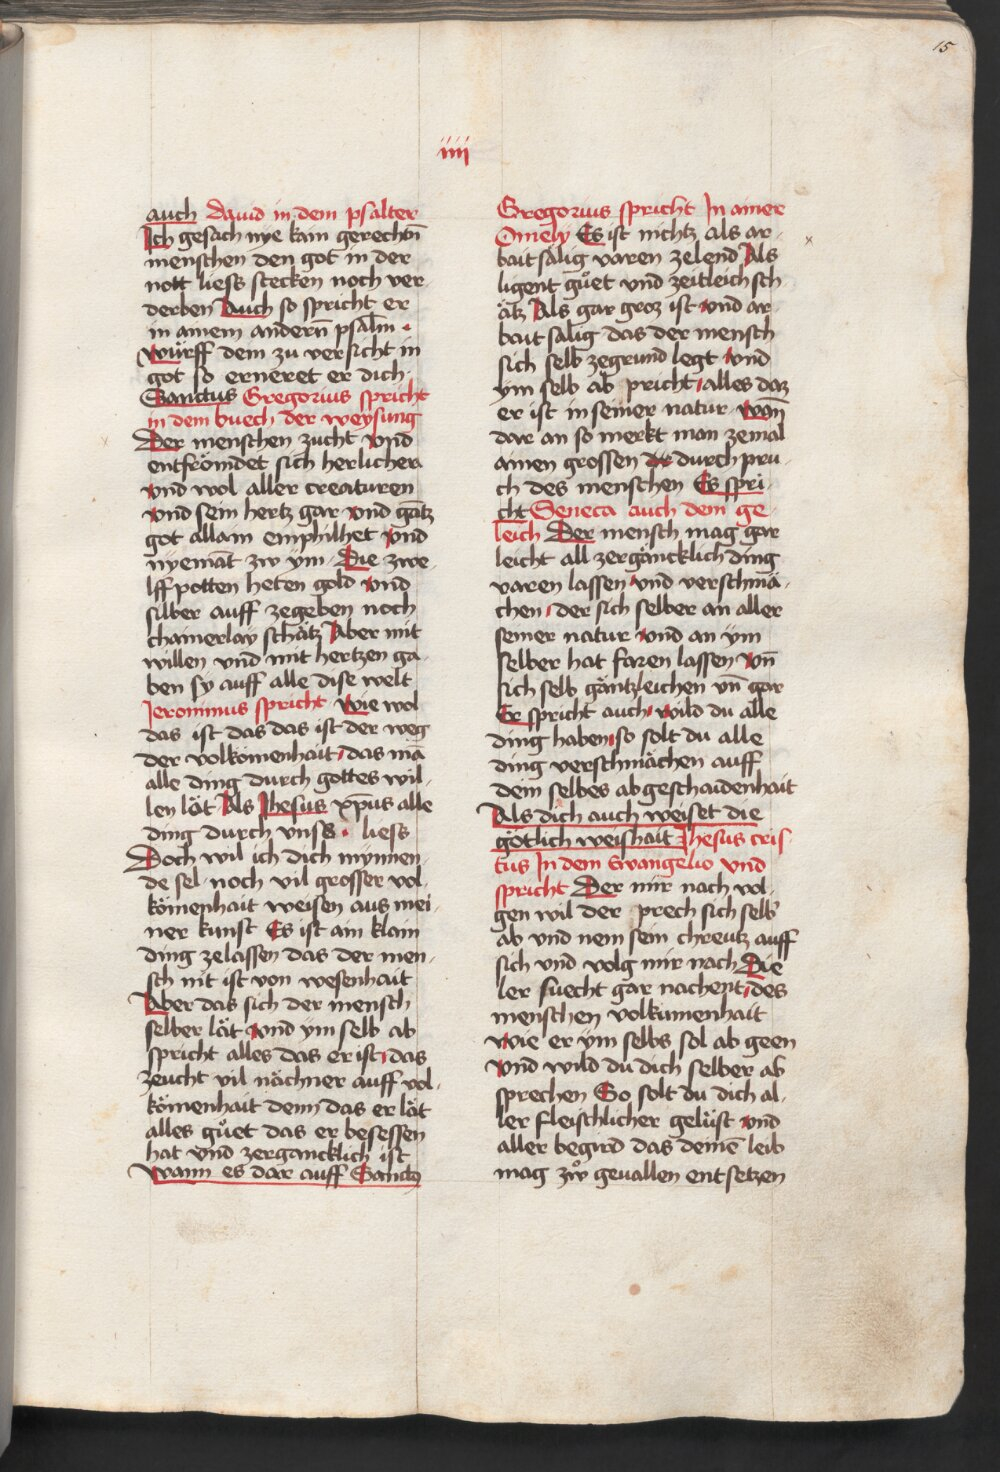 15
iiii
auch Dauid in dem psalter
Ich gesach nye kain gerechtn̄
menschen den got in der
nott liess stecken noch ver
derben Auch so spricht er
in ainem anderñ psalm ·
würff dem zu versicht in
got so erneret er dich ·
Sanctus Gregorius spricht
in dem buech der weysung
Der menschen zucht vnd
entfrömdet sich herlicher
vnd wol aller creaturen
vnd sein hertz gar vnd gātz
got allain emphilhet vnd
nyemāt zw ym · Die zwe
lff potten heten gold vnd
silber auff zegeben noch
chainerlay schätz Aber mit
willen vnd mit hertzen ga
ben sy auff alle dise welt
Jeronimus spricht wie wol
das ist das das ist der weg
der volkömenhait das mā
alle ding durch gottes wil
len lät Als Jhesus xp̄us alle
ding durch vnss · liess
Doch wil ich dich mynnen
de sel noch vil grosser vol
kömenhait weisen aus mei
ner kunst Es ist ain klain
ding zelassen das der men
sch nit ist von wesenhait
Aber das sich der mensch
selber lät vnd ym selb ab
spricht alles das er ist das
zeucht vil nächner auff vol
kömenhait denn das er lät
alles güet das er besessen
hat vnd zergancklich ist
Wann es dar auff Sanctus
Gregorius spricht In ainer
Omely Es ist nichtz als ar
bait sälig varen zelend Als
ligent güet vnd zeitleich sch
ätz Als gar groz ist vnd ar
bait sälig das der mensch
sich selb zegrund legt vnd
ym selb ab pricht alles daz
er ist in seiner natur wan̄
dar an so merkt man zemal
ainen grossen durch pru
ch des menschen Es spri
cht Seneca auch dem ge
leich Der mensch mag gar
leicht all zergäncklich ding
varen lassen vnd verschmä
chen der sich selber an aller
seiner natur vnd an ym
selber hat faren lassen vn̄
sich selb gäntzleichen vn̄ gar
Er spricht auch wild du alle
ding haben so solt du alle
ding verschmächen auff
dein selbes abgeschaidenhait
Als dich auch weiset die
götlich weishait Jhesus cris
tus In dem Ewangelio vnd
spricht Der mir nach vol
gen wil der prech sich selb
ab vnd nem sein chreutz auff
sich vnd volg mir nach Die
ler suecht gar nachent des
menschen volkumenhait
wie er ym selbs sol ab geen
vnd wild du dich selber ab
sprechen So solt du dich al
ler fleischlicher gelüst vnd
aller begird das deinē leib
mag zw gevallen entsetzen